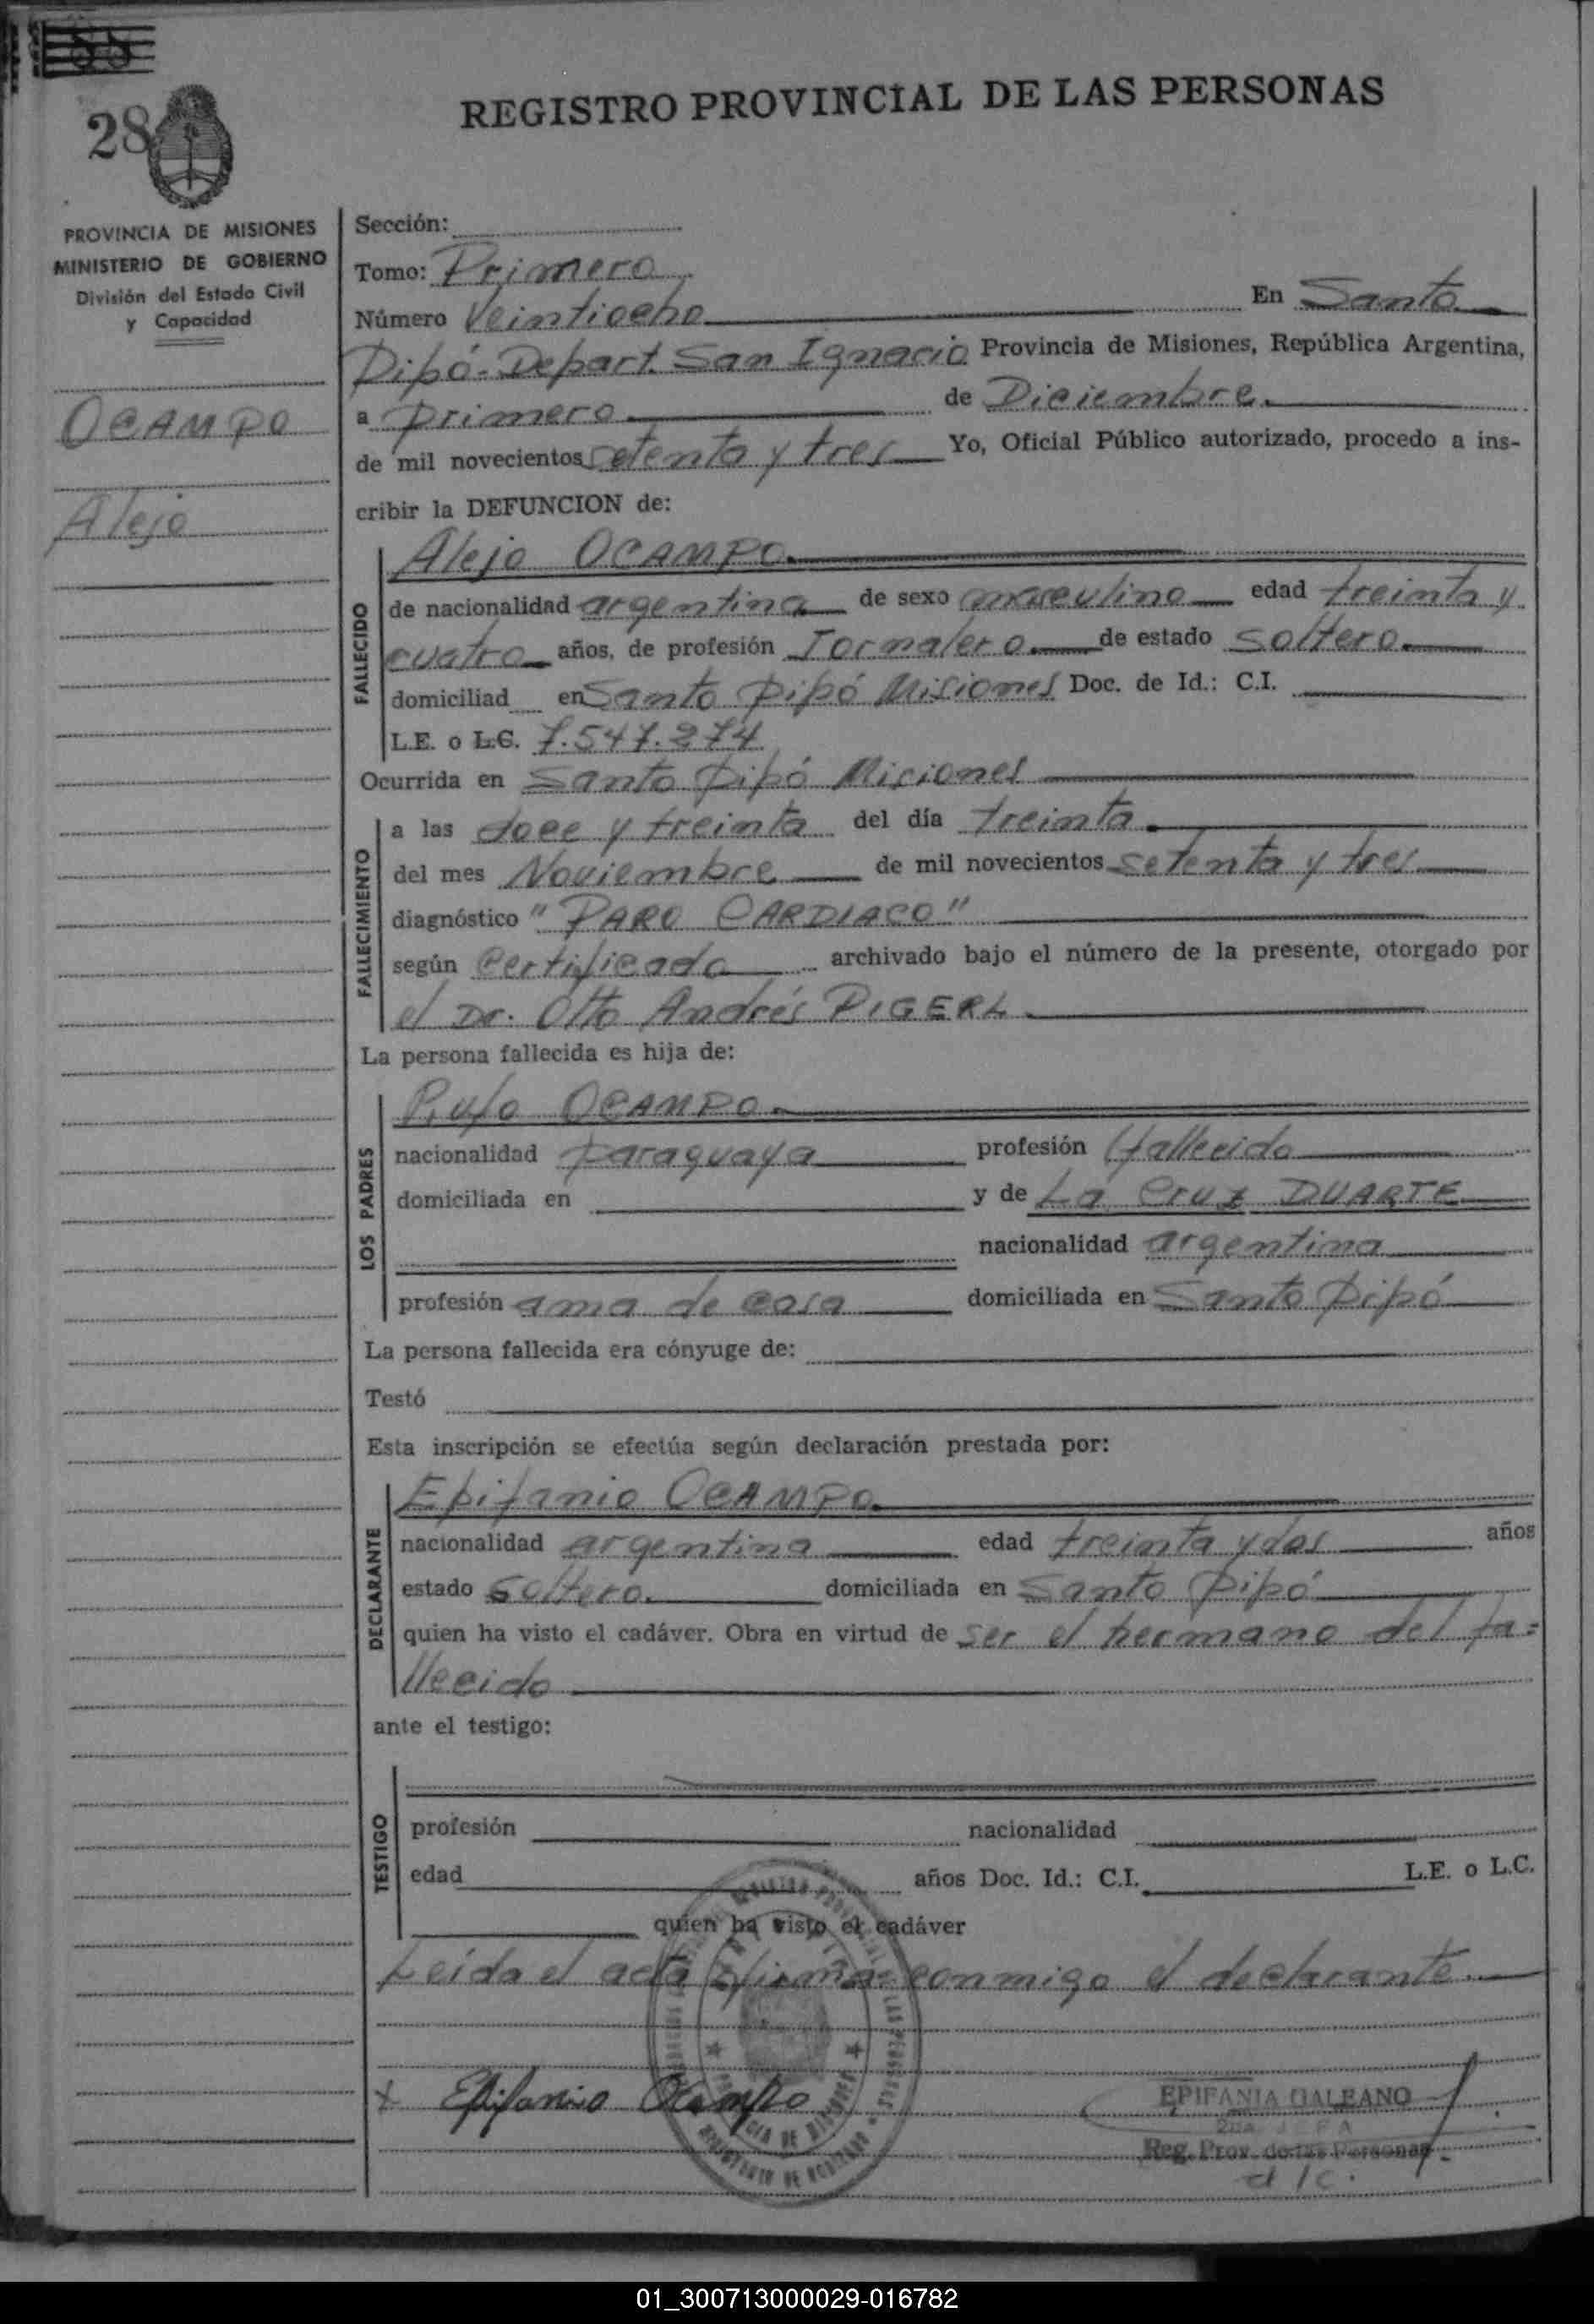 REGISTRO PROVINCIAL DE LAS PERSONAS
28
PROVINCIA DE MISIONES
MINISTERIO DE GOBIERNO
División del Estado Civil
y Capacidad
OCAMPO
Alejo
Sección:
Tomo: Primero
Número Veintiocho En Santo
Pipó-Depart. San Ignacio Provincia de Misiones, República Argentina,
a primero de Diciembre
de mil novecientos setenta y tres Yo, Oficial Público autorizado, procedo a ins-
cribir la DEFUNCION de:
FALLECIDO
Alejo OCAMPO
de nacionalidad argentina de sexo masculino edad treinta y
cuatro años, de profesión Jornalero de estado soltero
domiciliad en Santo Pipó Misiones Doc. de Id.: C.I.
L.E. o L.C. 7.547.274
Ocurrida en Santo Pipó Misiones
FALLECIMIENTO
a las doce y treinta del día treinta
del mes Noviembre de mil novecientos setenta y tres
diagnóstico "PARO CARDIACO"
según certificado archivado bajo el número de la presente, otorgado por
el Dr. Otto Andrés PIGERL
La persona fallecida es hija de:
LOS PADRES
Rufo OCAMPO
nacionalidad paraguaya profesión fallecido
domiciliada en y de La Cruz DUARTE
nacionalidad argentina
profesión ama de casa domiciliada en Santo Pipó
La persona fallecida era cónyuge de:
Testó
Esta inscripción se efectúa según declaración prestada por:
DECLARANTE
Epifanio OCAMPO
nacionalidad argentina edad treinta y dos años
estado soltero. domiciliada en Santo Pipó
quien ha visto el cadáver. Obra en virtud de ser el hermano del fa=
llecido
ante el testigo:
TESTIGO
profesión nacionalidad
edad años Doc. Id.: C.I. L.E. o L.C.
quien ha visto el cadáver
Leída el acta firma conmigo el declarante.
x Epifanio Ocampo
EPIFANIA GALEANO
Reg. Prov. de las Personas
01_300713000029-016782